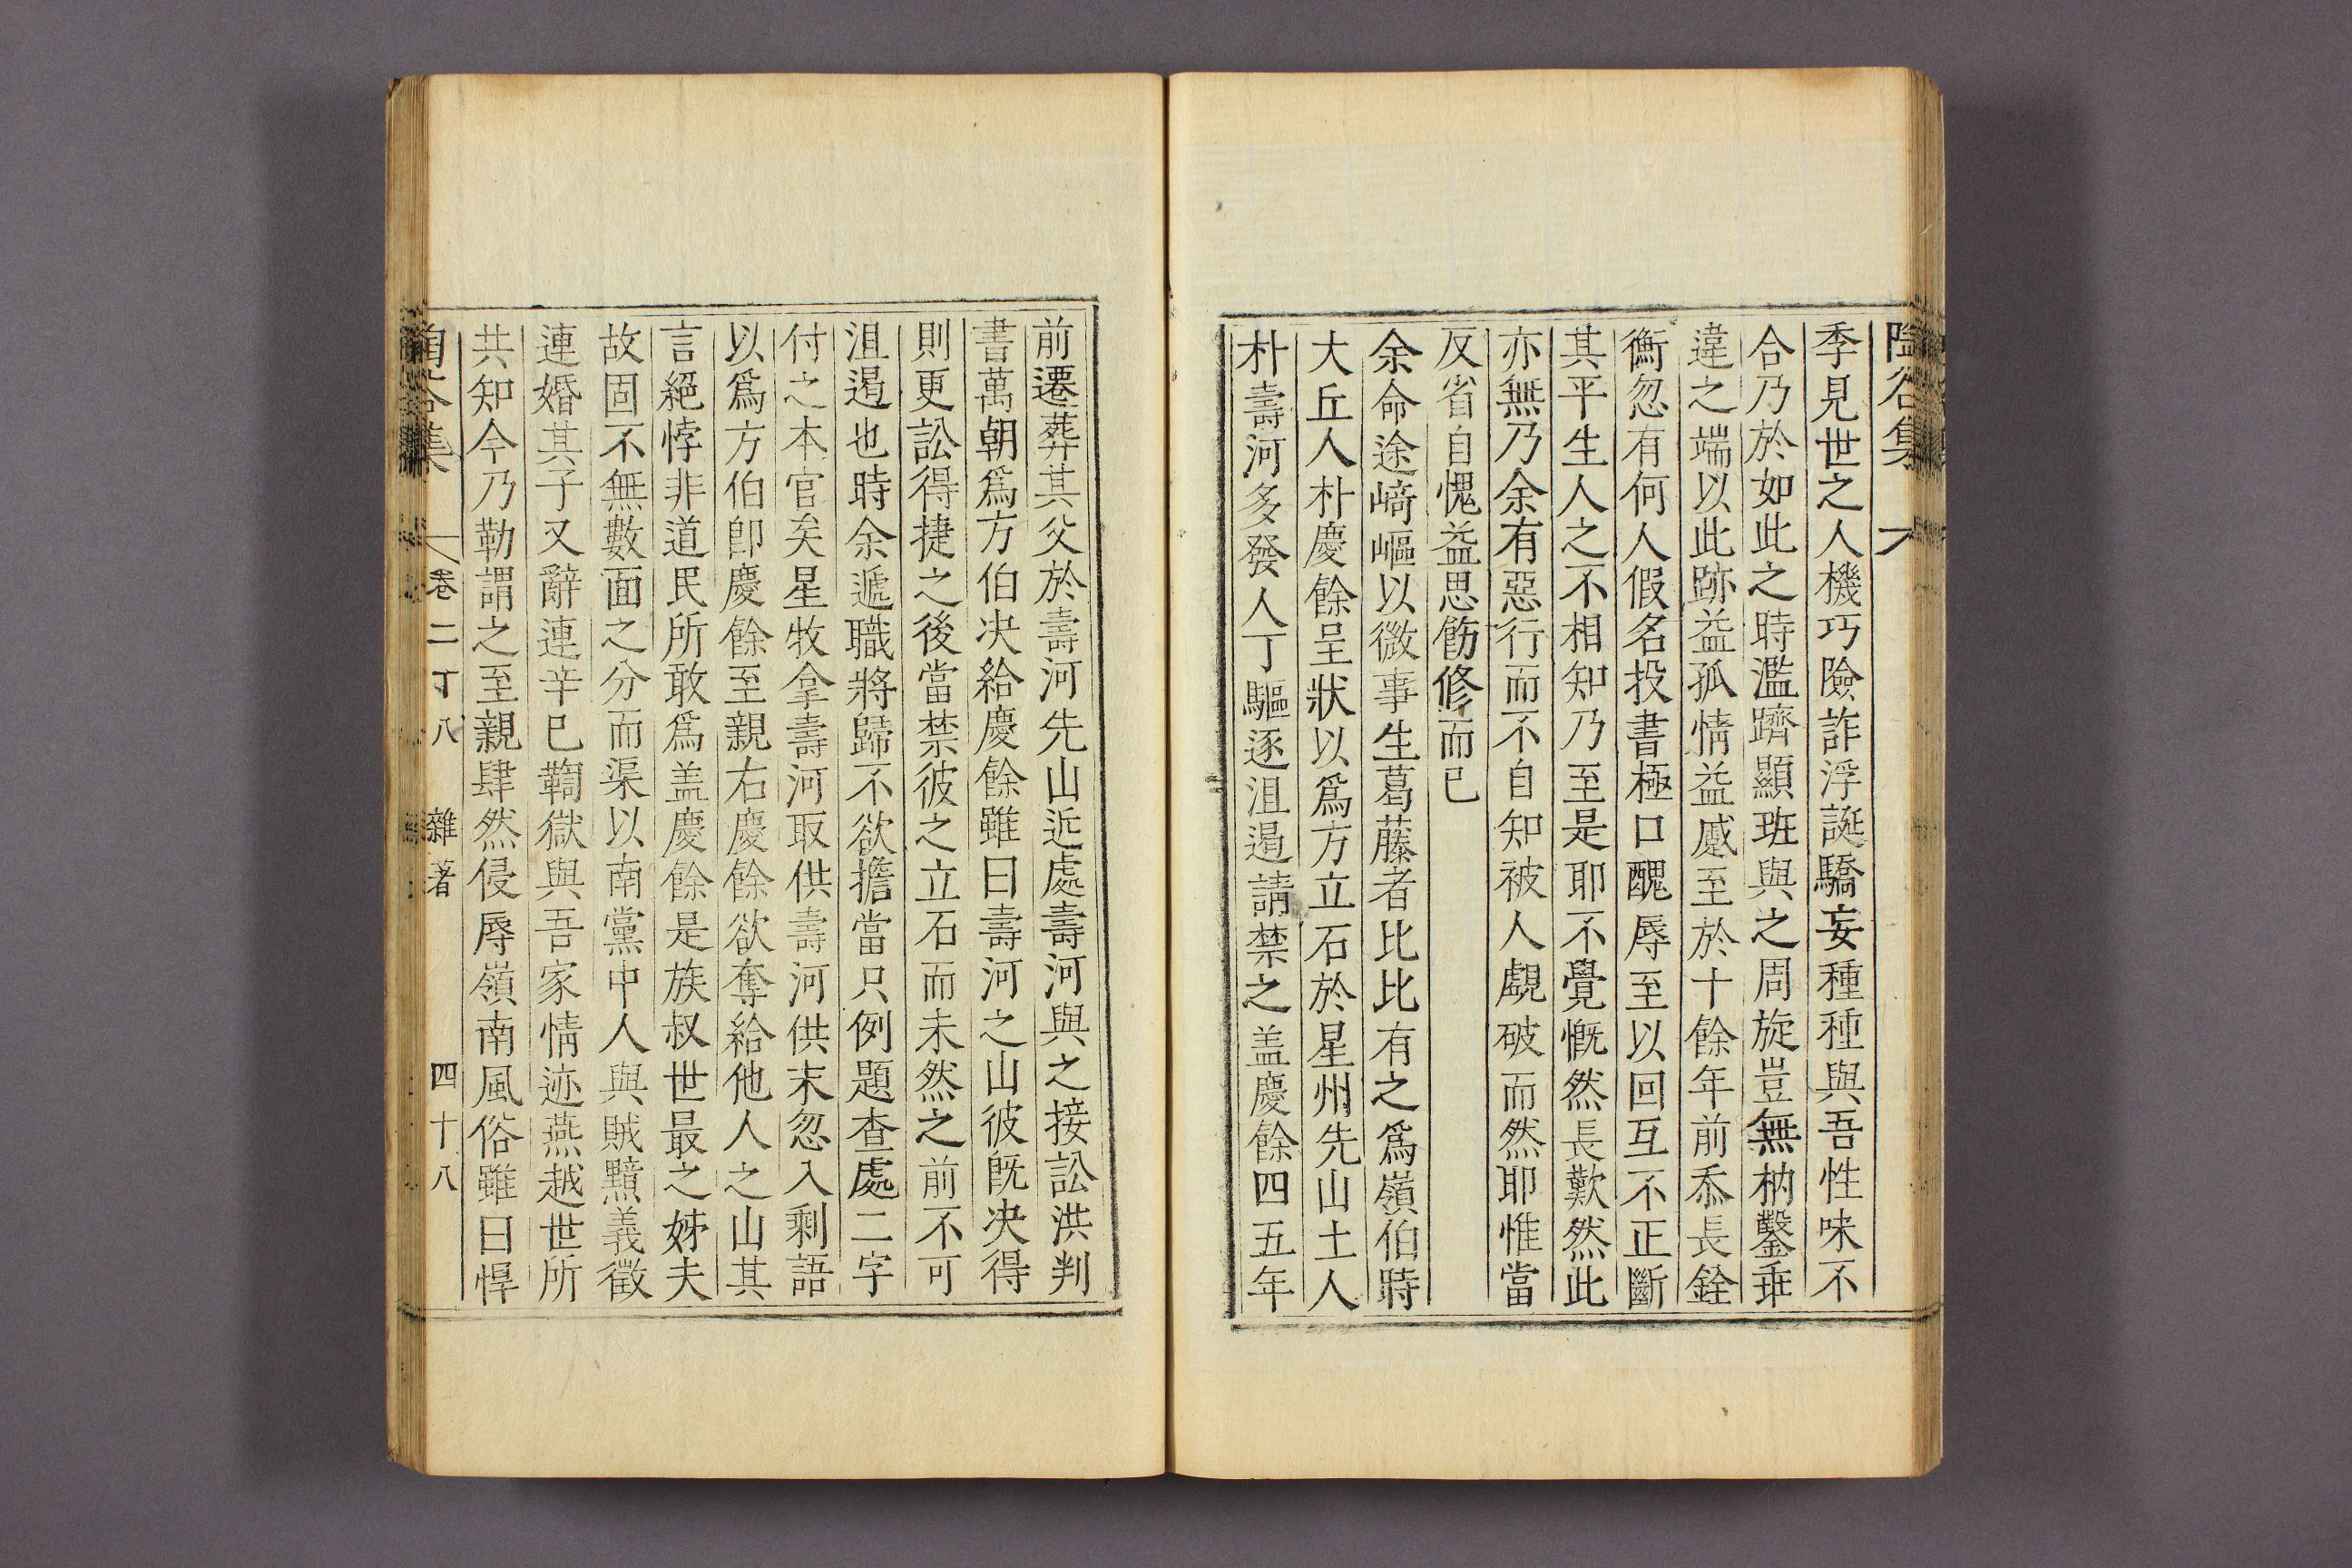 陶谷集
季見世之人機巧險詐浮誕驕妄種種與吾性味不
合乃於如此之時濫躋顯班與之周旋豈無枘鑿乖
違之端以此跡益孤情益慼至於十餘年前忝長銓
衡忽有何人假名投書極口醜辱至以回互不正斷
其平生人之不相知乃至是耶不覺慨然長歎然此
亦無乃余有惡行而不自知被人覷破而然耶惟當
反省自愧益思飭修而已
余命途崎嶇以微事生葛藤者比比有之爲嶺伯時
大丘人朴慶餘呈狀以爲方立石於星州先山土人
朴壽河多發人丁驅逐沮遏請禁之盖慶餘四五年
前遷葬其父於壽河先山近處壽河與之接訟洪判
書萬朝爲方伯决給慶餘雖曰壽河之山彼旣决得
則更訟得捷之後當禁彼之立石而未然之前不可
沮遏也時余遞職將歸不欲擔當只例題查處二字
付之本官矣星牧拿壽河取供壽河供末忽入剩語
以爲方伯卽慶餘至親右慶餘欲奪給他人之山其
言絕悖非道民所敢爲盖慶餘是族叔世最之姊夫
故固不無數面之分而渠以南黨中人與賊黯義徵
連婚其子又辭連辛巳鞫獄與吾家情迹燕越世所
共知今乃勒謂之至親肆然侵辱嶺南風俗雖曰悍
集 卷二十八 雜著 四十八